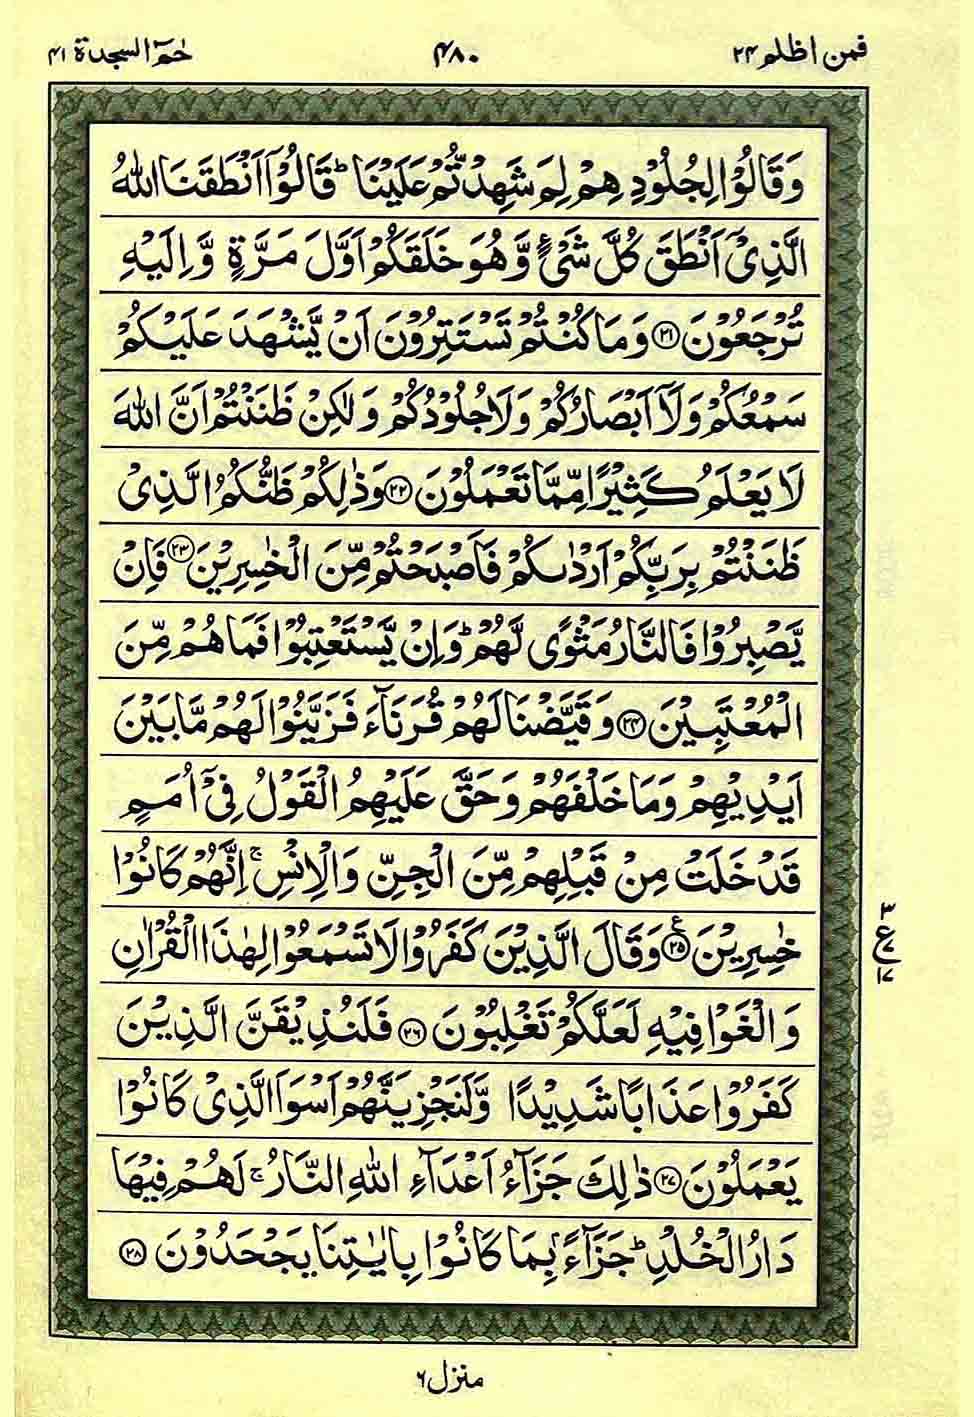 فمن اظلم ۲۴ ۴۸۰ حٰمٓ السجدة ۴۱
وَقَالُوْا لِجُلُوْدِهِمْ لِمَ شَهِدْتُّمْ عَلَيْنَا ؕ قَالُوْۤا اَنْطَقَنَا اللّٰهُ
الَّذِىْۤ اَنْطَقَ كُلَّ شَىْءٍ وَّهُوَ خَلَقَكُمْ اَوَّلَ مَرَّةٍ وَّاِلَيْهِ
تُرْجَعُوْنَ ﴿۲۱﴾ وَمَا كُنْتُمْ تَسْتَتِرُوْنَ اَنْ يَّشْهَدَ عَلَيْكُمْ
سَمْعُكُمْ وَلَاۤ اَبْصَارُكُمْ وَلَا جُلُوْدُكُمْ وَلٰكِنْ ظَنَنْتُمْ اَنَّ اللّٰهَ
لَا يَعْلَمُ كَثِيْرًا مِّمَّا تَعْمَلُوْنَ ﴿۲۲﴾ وَذٰلِكُمْ ظَنُّكُمُ الَّذِىْ
ظَنَنْتُمْ بِرَبِّكُمْ اَرْدٰىكُمْ فَاَصْبَحْتُمْ مِّنَ الْخٰسِرِيْنَ ﴿۲۳﴾ فَاِنْ
يَّصْبِرُوْا فَالنَّارُ مَثْوًى لَّهُمْ ؕ وَاِنْ يَّسْتَعْتِبُوْا فَمَا هُمْ مِّنَ
الْمُعْتَبِيْنَ ﴿۲۴﴾ وَقَيَّضْنَا لَهُمْ قُرَنَآءَ فَزَيَّنُوْا لَهُمْ مَّا بَيْنَ
اَيْدِيْهِمْ وَمَا خَلْفَهُمْ وَحَقَّ عَلَيْهِمُ الْقَوْلُ فِىْۤ اُمَمٍ
قَدْ خَلَتْ مِنْ قَبْلِهِمْ مِّنَ الْجِنِّ وَالْاِنْسِ ۚ اِنَّهُمْ كَانُوْا
خٰسِرِيْنَ ﴿۲۵﴾ ع وَقَالَ الَّذِيْنَ كَفَرُوْا لَا تَسْمَعُوْا لِهٰذَا الْقُرْاٰنِ
۳ ع ۱۷
وَالْغَوْا فِيْهِ لَعَلَّكُمْ تَغْلِبُوْنَ ﴿۲۶﴾ فَلَنُذِيْقَنَّ الَّذِيْنَ
كَفَرُوْا عَذَابًا شَدِيْدًا وَّلَنَجْزِيَنَّهُمْ اَسْوَاَ الَّذِىْ كَانُوْا
يَعْمَلُوْنَ ﴿۲۷﴾ ذٰلِكَ جَزَآءُ اَعْدَآءِ اللّٰهِ النَّارُ ۚ لَهُمْ فِيْهَا
دَارُ الْخُلْدِ ؕ جَزَآءًۢ بِمَا كَانُوْا بِاٰيٰتِنَا يَجْحَدُوْنَ ﴿۲۸﴾
منزل ۶